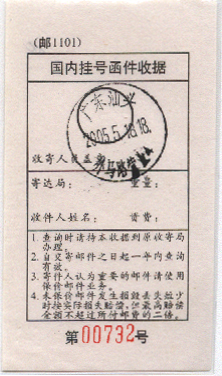 (邮1101)
国内挂号函件收据
广东汕头
2005.5.18.18.
收寄人员盖章
寄达局： 重量：
收件人姓名： 资费：
1. 查询时请持本收据到原收寄局
办理。
2. 自交寄邮件之日起一年内查询
有效。
3. 寄件人认为重要的邮件请使用
保价邮件业务。
4. 未保价邮件发生损毁丢失短少
时按实际损失赔偿，但最高赔偿
金额不超过所付邮费的二倍。
第00732号